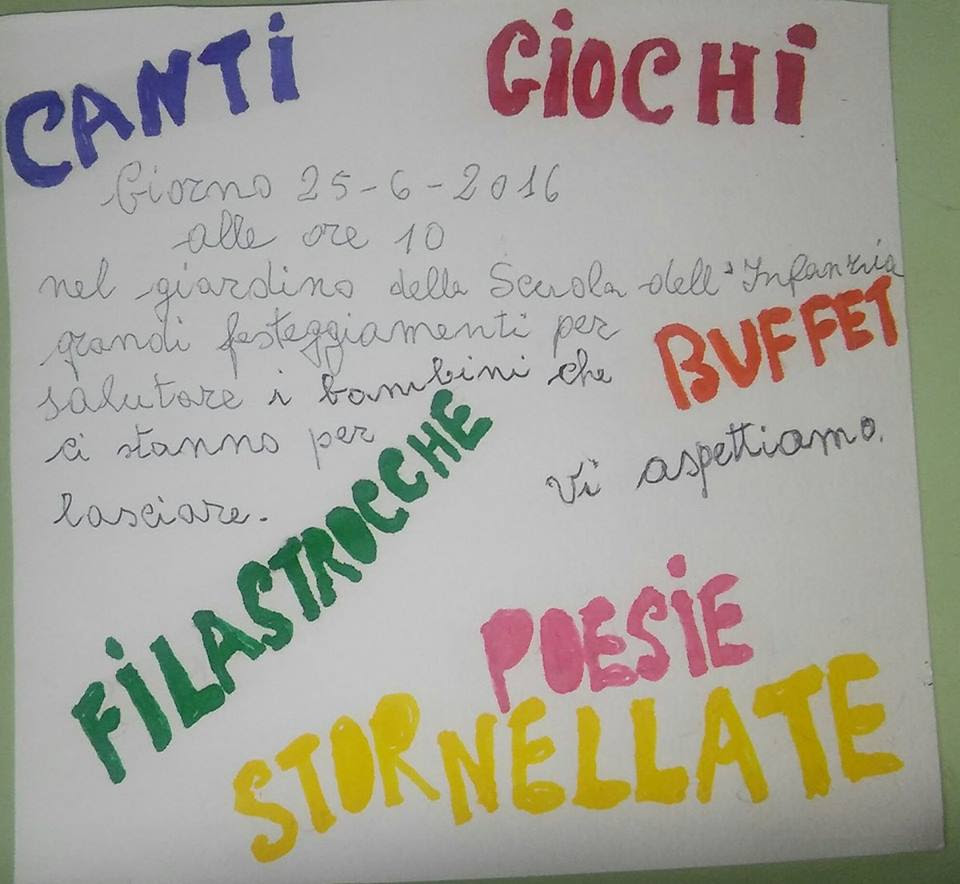 CANTi
GiOCHi
Giorno 25-6-2016
alle ore 10
nel giardino della Scuola dell'Infanzia
grandi festeggiamenti per
salutare i bambini che
BUFFET
ci stanno per
lasciare.
Vi aspettiamo.
FiLASTROCCHE
POESiE
STORNELLATE